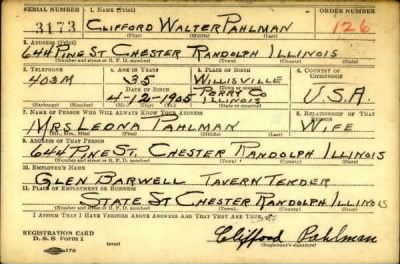 SERIAL NUMBER 1. NAME (Print) ORDER NUMBER
3173 CLIFFORD WALTER PAHLMAN 126
(First) (Middle) (Last)
2. ADDRESS (Print)
644 PINE ST. CHESTER RANDOLPH ILLINOIS
(Number and street or R. F. D. number) (Town) (County) (State)
3. TELEPHONE 4. AGE IN YEARS 5. PLACE OF BIRTH 6. COUNTRY OF CITIZENSHIP
403M 35 WILLISVILLE
DATE OF BIRTH (Town or county)
4-12-1905 PERRY CO ILLINOIS U.S.A.
(Exchange) (Number) (Mo.) (Day) (Yr.) (State or country)
7. NAME OF PERSON WHO WILL ALWAYS KNOW YOUR ADDRESS 8. RELATIONSHIP OF THAT PERSON
MRS LEONA PAHLMAN WIFE
(Mr., Mrs., Miss) (First) (Middle) (Last)
9. ADDRESS OF THAT PERSON
644 PINE ST. CHESTER RANDOLPH ILLINOIS
(Number and street or R. F. D. number) (Town) (County) (State)
10. EMPLOYER'S NAME
GLEN BARWELL TAVERN TENDER
11. PLACE OF EMPLOYMENT OR BUSINESS
STATE ST CHESTER RANDOLPH ILLINOIS
(Number and street or R. F. D. number) (Town) (County) (State)
I AFFIRM THAT I HAVE VERIFIED ABOVE ANSWERS AND THAT THEY ARE TRUE.
REGISTRATION CARD
D. S. S. Form 1
Clifford Pahlman
(Registrant's signature)